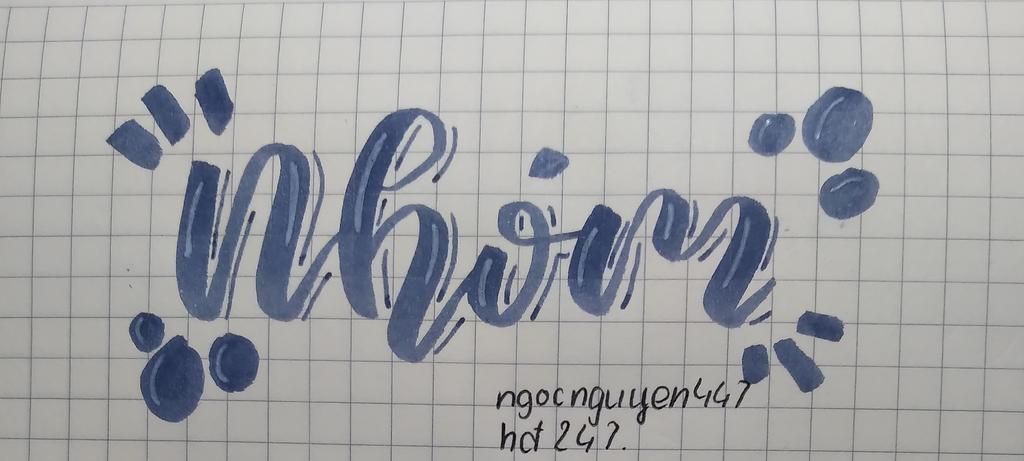 Nhóm
ngocnguyen447
hđ 247.